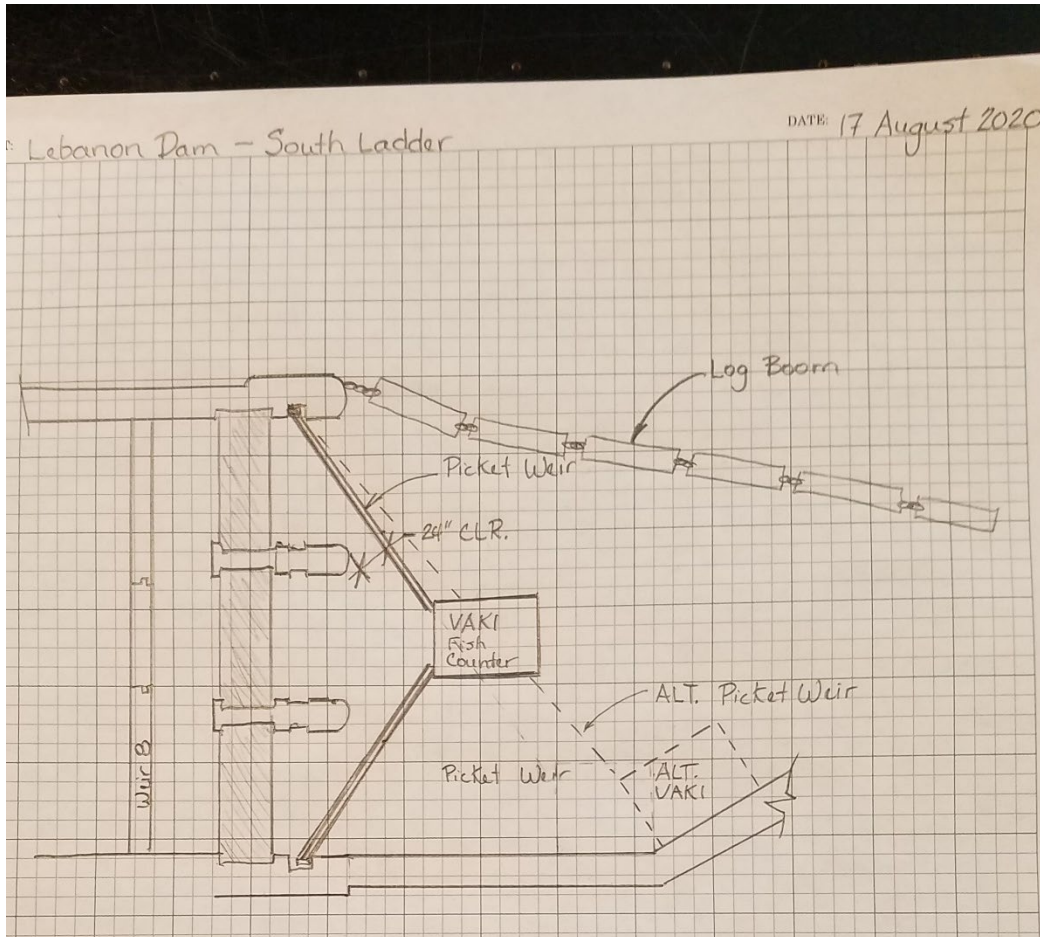 Lebanon Dam - South Ladder
DATE: 17 August 2020
Log Boom
Picket Weir
24" CLR.
VAKI
Fish
Counter
ALT. Picket Weir
Picket Weir
ALT.
VAKI
Weir B